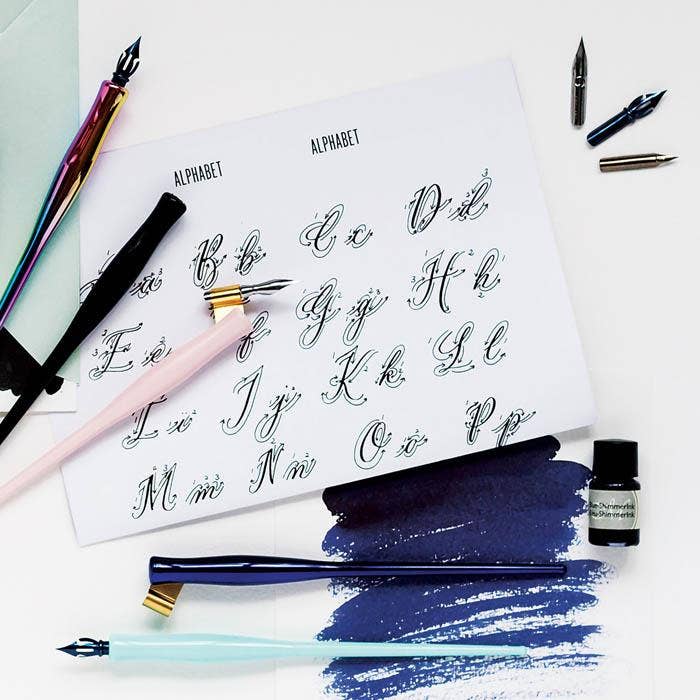 ALPHABET ALPHABET
a B b C c D d
E e f G g H h
I i J j K k L l
M m N n O o P p
ShimmerInk
ShimmerInk